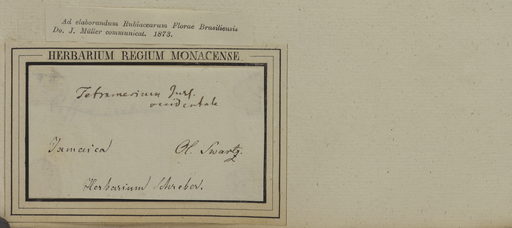 Ad elaborandum Rubiacearum Florae Brasiliensis
Do. J. Müller communicat. 1873.
HERBARIUM REGIUM MONACENSE
Tetramerium
occidentale
Jamaica Ol. Swartz.
Herbarium Schreber.